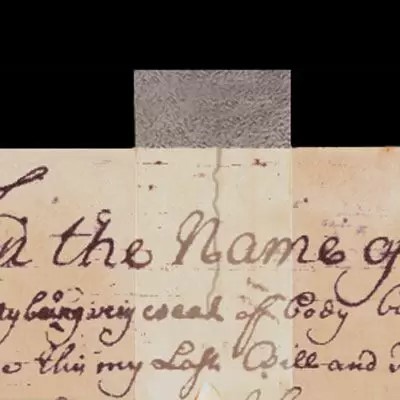 the Name of
being very weak off Body
this my Last Will and